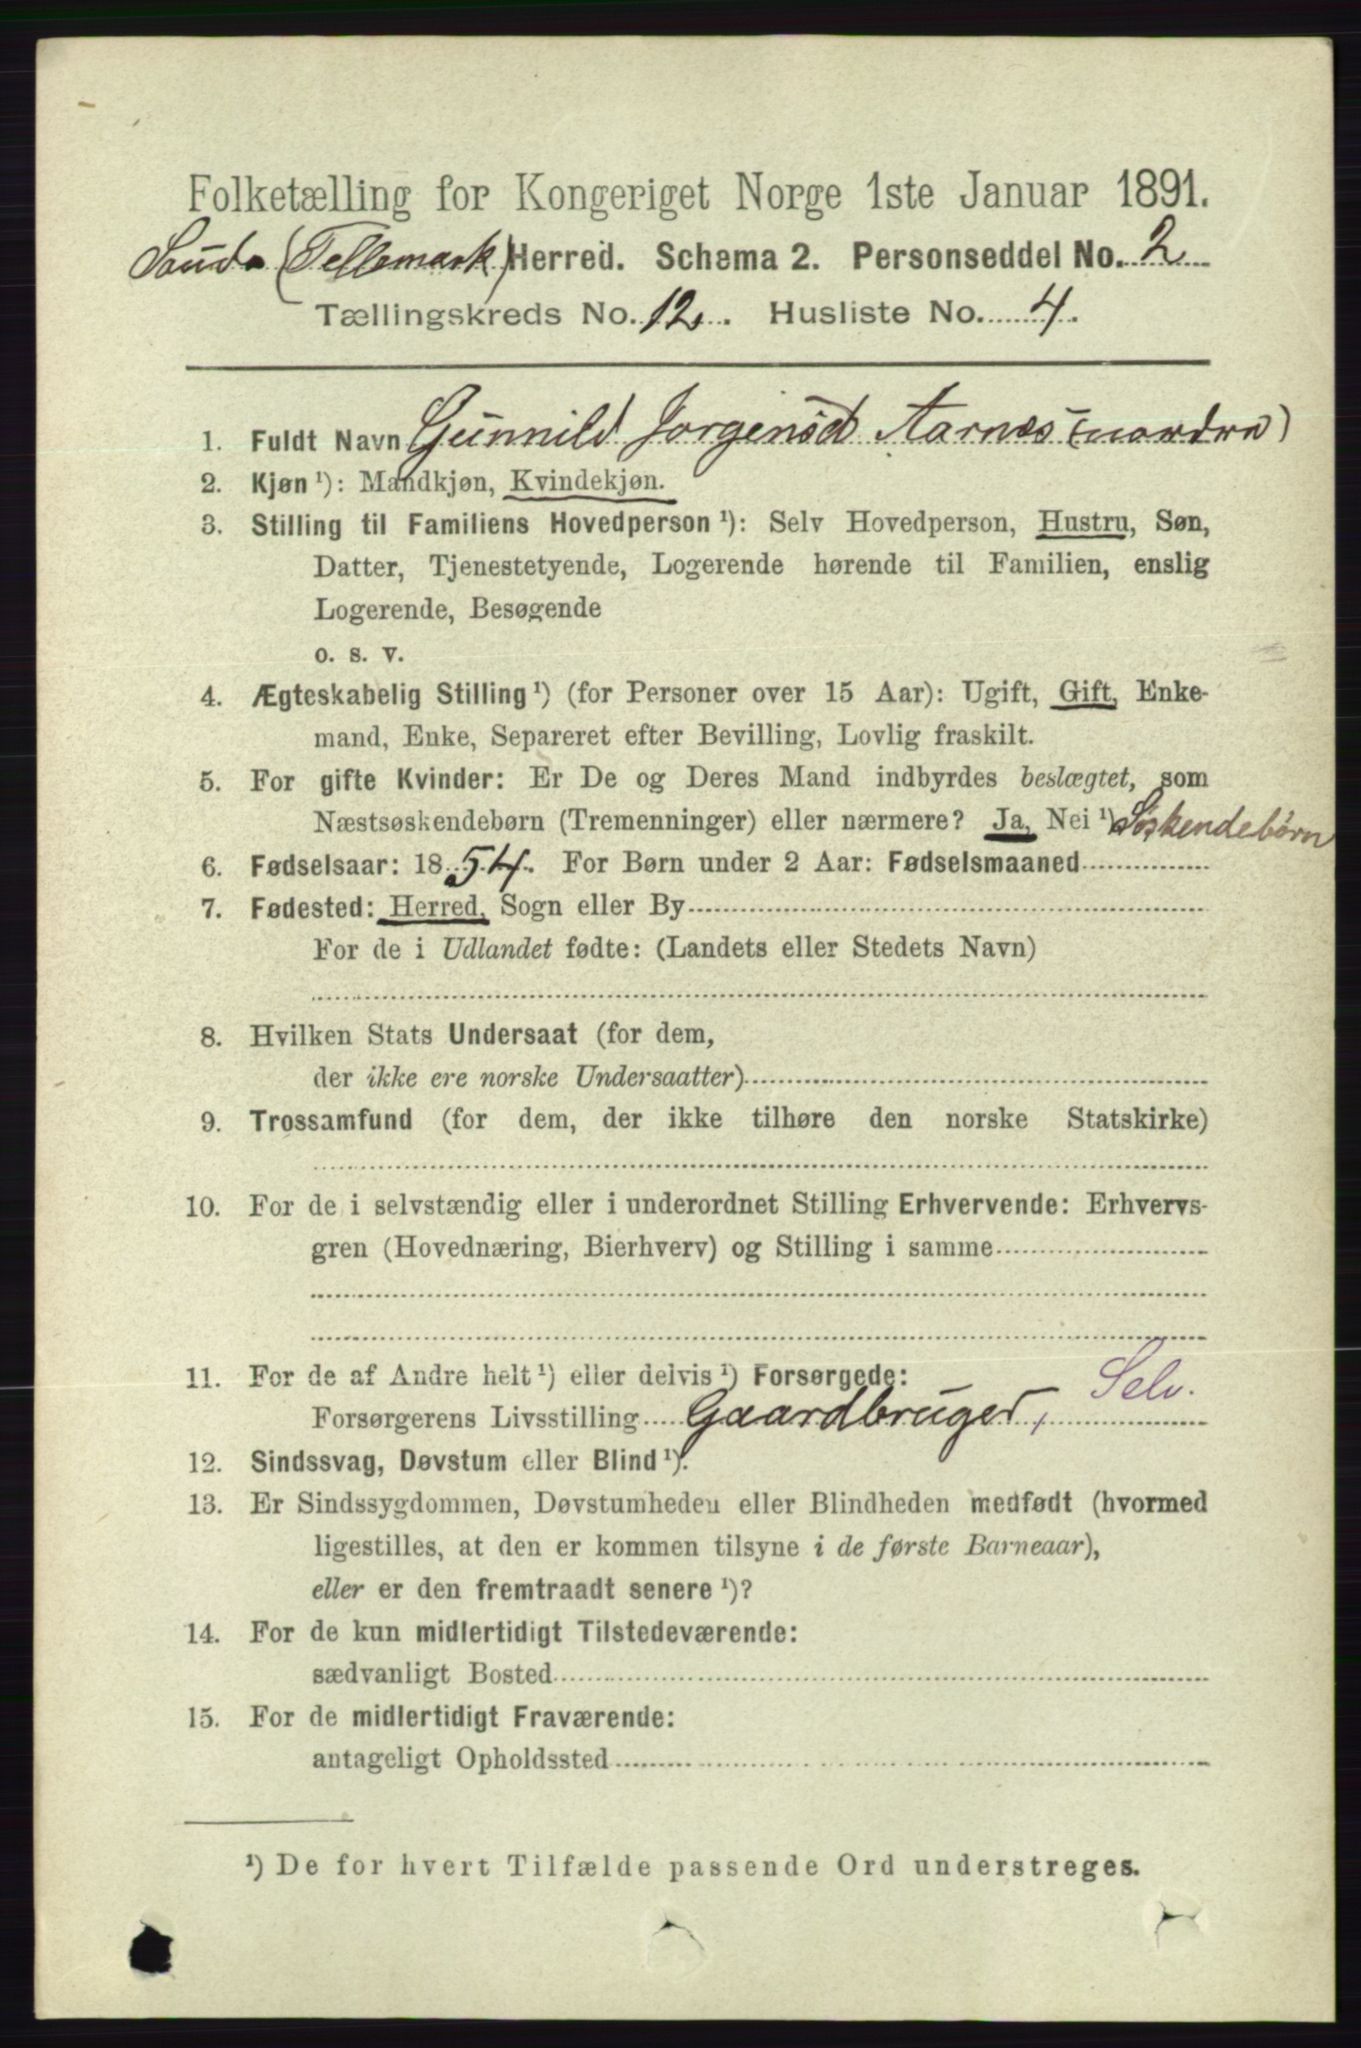 Folketælling for Kongeriget Norge 1ste Januar 1891.
Saude (Tellemark) Herred. Schema 2. Personseddel No. 2
Tællingskreds No. 12. Husliste No. 4.
1. Fuldt Navn Gunnild Jorgensd Aarnæs (nordre)
2. Kjøn ¹): Mandkjøn, Kvindekjøn.
3. Stilling til Familiens Hovedperson ¹): Selv Hovedperson, Hustru, Søn,
Datter, Tjenestetyende, Logerende hørende til Familien, enslig
Logerende, Besøgende
o. s. v.
4. Ægteskabelig Stilling ¹) (for Personer over 15 Aar): Ugift, Gift, Enke-
mand, Enke, Separeret efter Bevilling, Lovlig fraskilt.
5. For gifte Kvinder: Er De og Deres Mand indbyrdes beslægtet, som
Næstsøskendebørn (Tremenninger) eller nærmere? Ja, Nei ¹) Søskendebørn
6. Fødselsaar: 1854. For Børn under 2 Aar: Fødselsmaaned
7. Fødested: Herred, Sogn eller By
For de i Udlandet fødte: (Landets eller Stedets Navn)
8. Hvilken Stats Undersaat (for dem,
der ikke ere norske Undersaatter)
9. Trossamfund (for dem, der ikke tilhøre den norske Statskirke)
10. For de i selvstændig eller i underordnet Stilling Erhvervende: Erhvervs-
gren (Hovednæring, Bierhverv) og Stilling i samme
11. For de af Andre helt ¹) eller delvis ¹) Forsørgede:
Forsørgerens Livsstilling Gaardbruger, Selv.
12. Sindssvag, Døvstum eller Blind ¹).
13. Er Sindssygdommen, Døvstumheden eller Blindheden medfødt (hvormed
ligestilles, at den er kommen tilsyne i de første Barneaar),
eller er den fremtraadt senere ¹)?
14. For de kun midlertidigt Tilstedeværende:
sædvanligt Bosted
15. For de midlertidigt Fraværende:
antageligt Opholdssted
¹) De for hvert Tilfælde passende Ord understreges.